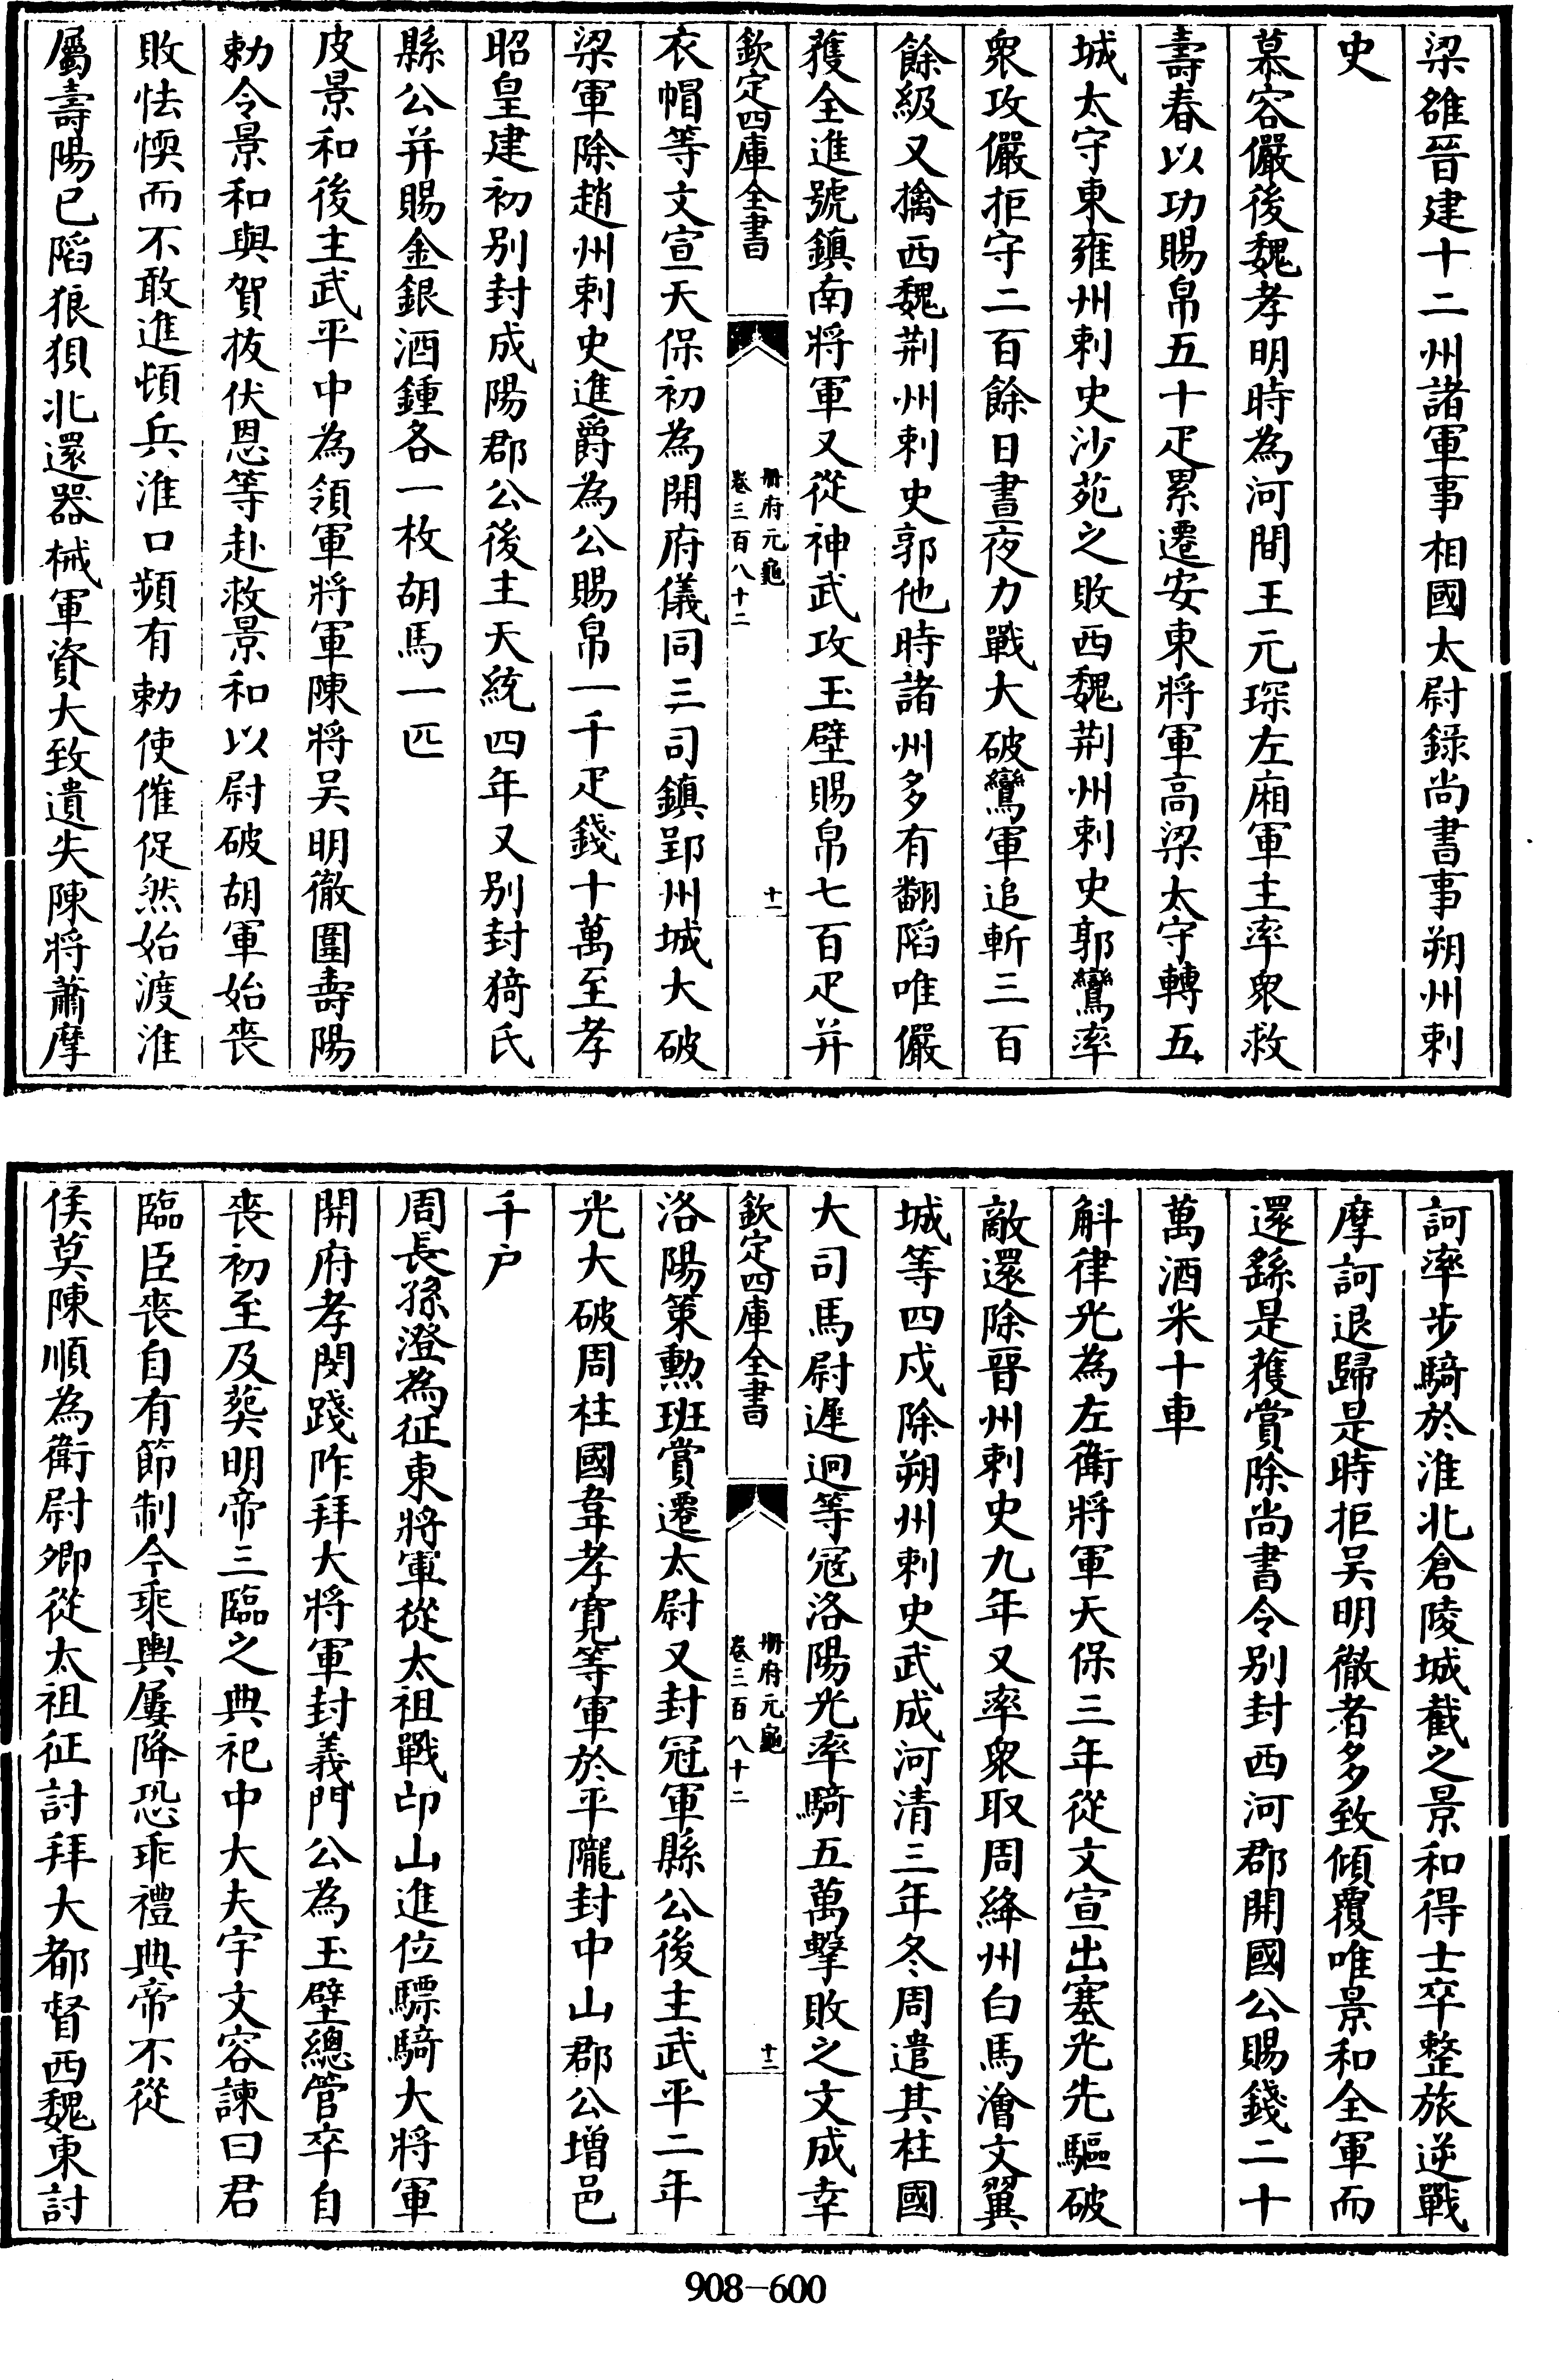 梁雒晉建十二州諸軍事相國太尉錄尚書事朔州刺
史
慕容儼後魏孝明時為河間王元琛左廂軍主率衆救
壽春以功賜帛五十疋累遷安東將軍高梁太守轉五
城太守東雍州刺史沙苑之敗西魏荆州刺史郭鸞率
衆攻儼拒守二百餘日晝夜力戰大破鸞軍追斬三百
餘級又擒西魏荆州刺史郭他時諸州多有翻陷唯儼
獲全進號鎮南將軍又從神武攻玉壁賜帛七百疋并
欽定四庫全書
册府元龜
卷三百八十二
十一
衣帽等文宣天保初為開府儀同三司鎮郢州城大破
梁軍除趙州刺史進爵為公賜帛一千疋錢十萬至孝
昭皇建初别封成陽郡公後主天統四年又别封猗氏
縣公并賜金銀酒鍾各一枚胡馬一匹
皮景和後主武平中為領軍將軍陳將吴明徹圍壽陽
勅令景和與賀抜伏恩等赴救景和以尉破胡軍始喪
敗怯愞而不敢進頓兵淮口頻有勅使催促然始渡淮
屬壽陽已陷狼狽北還器械軍資大致遺失陳將蕭摩
訶率步騎於淮北倉陵城截之景和得士卒整旅逆戰
摩訶退歸是時拒吴明徹者多致傾覆唯景和全軍而
還繇是獲賞除尚書令别封西河郡開國公賜錢二十
萬酒米十車
斛律光為左衛將軍天保三年從文宣出塞光先驅破
敵還除晉州刺史九年又率衆取周絳州白馬澮文翼
城等四戍除朔州刺史武成河清三年冬周遣其柱國
大司馬尉遲迥等寇洛陽光率騎五萬擊敗之文成幸
欽定四庫全書
册府元龜
卷三百八十二
十二
洛陽策勲班賞遷太尉又封冠軍縣公後主武平二年
光大破周柱國韋孝寛等軍於平隴封中山郡公增邑
千户
周長孫澄為征東將軍從太祖戰邙山進位驃騎大將軍
開府孝閔踐阼拜大將軍封義門公為玉壁總管卒自
喪初至及葬明帝三臨之典祀中大夫宇文容諫曰君
臨臣喪自有節制今乘輿屢降恐乖禮典帝不從
侯莫陳順為衛尉卿從太祖征討拜大都督西魏東討
908-600